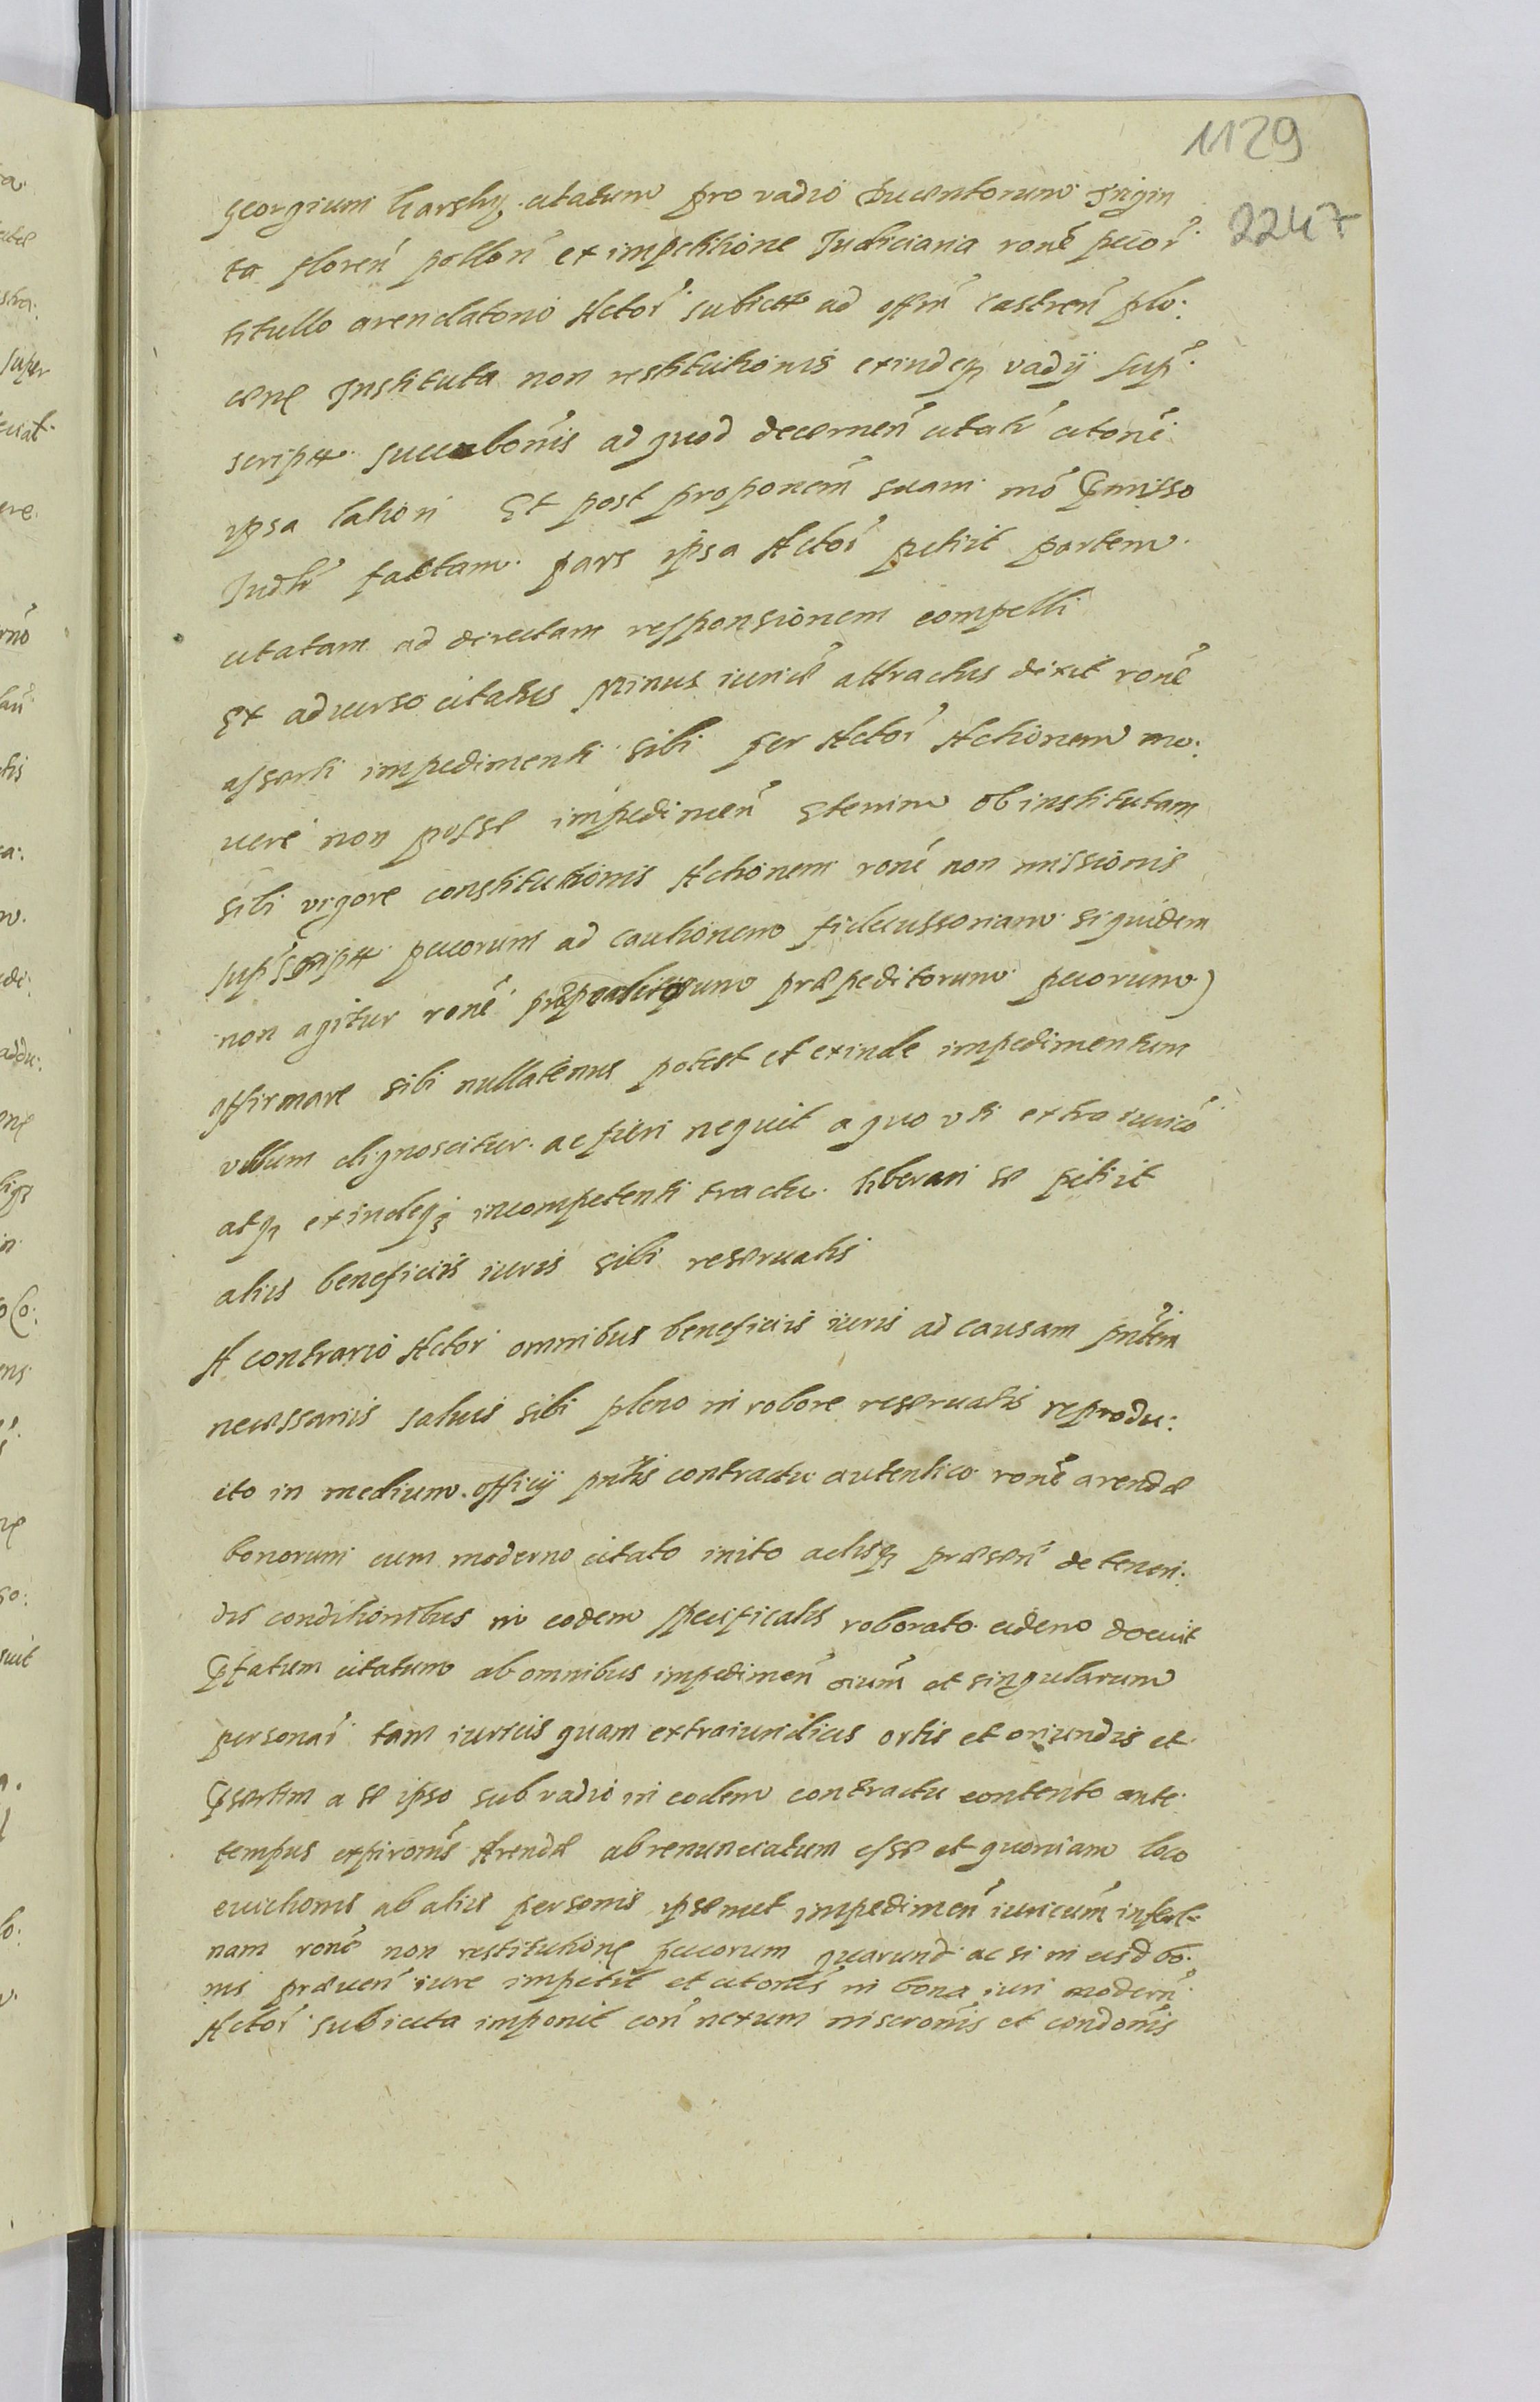 1129
2247
Georgium Harsky citatum pro vadio Ducentorum Trigin
ta floren̄ pollon̄ ex impetitione Iudiciaria rone pecor̄
titullo arendatorio Actor̄ subiect ad offm̄ castren̄ plo:
cene Instituta non restitutionis exindeq vadÿ sup̄
script succubonis ad quod decernen̄ citati citone
ipsa lation Et post proponem̄ suam mo p̄misso
Iudli factam pars ipsa Actor̄ petiit partem
citatam ad directam responsionem compelli
Ex aduerso citatus Minus iurice attractus dixit rone
asserti impedimenti sibi per Actor̄ Actionem mo:
uere non posse impedimen̄ Etenim ob institutam
sibi vigore constitutionis Actionem rone non missionis
sup̄script pecorum ad cautionem fideiussoriam siquidem
non agitur rone præpeditorum pecorum)
affirmare sibi nullatenus potest et exinde impedimentum
vllum dignoscitur ac fieri nequit a quo vti extraiurico
atq exindeq incompetenti tractu liberari se petiit
aliis beneficiis iuris sibi reseruatis
A contrario Actor omnibus beneficiis iuris ad causam pn̄tem
necessariis saluis sibi pleno in robore reseruatis reprodu:
cto in medium officij pn̄tis contractu autentico rone arendæ
bonorum cum moderno citato inito actisq præsen̄ de tenen:
dis conditionibus in eodem specificatis roborato eidem docuit
p̄fatum citatum ab omnibus impedimen̄ oium̄ et singularum
personar̄ tam iuricis quam extraiuridicis ortis et oriundis et
p̄sertim a se ipso sub vadio in eodem contractu contento ante
tempus expironis Arendæ abrenunciatum esse et quoniam loco
euictionis ab aliis personis ipsemet impedimen̄ iuricum
nam rone non restitutione pecorum quarund ac si in eisd bo:
nis præuen̄ iure impetit et citones in bona iuri modern̄
Actor̄ subiecta imponit con̄nexum miseronis et condonis